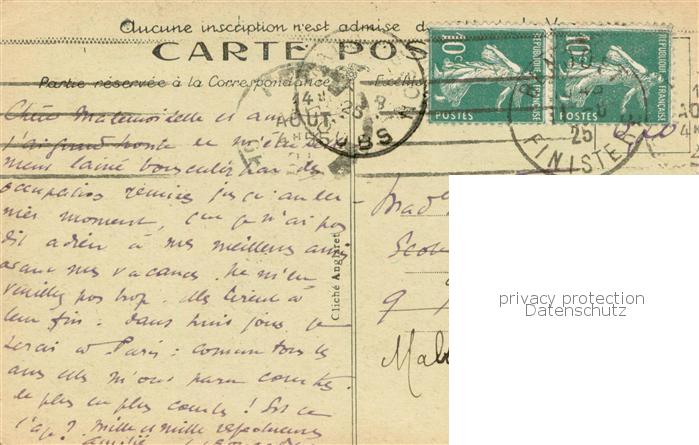 Aucune inscription n'est admise
CARTE POS
Partie réservée à la Correspondance
10c 10c
POSTES POSTES
REPUBLIQUE FRANÇAISE REPUBLIQUE FRANÇAISE
14 AOUT
DOUBS
25
FINISTERE
Chère Mademoiselle et amie
J'ai grand honte de m'être
laissé bousculer par des
occupations jusqu'au der
nier moment, que je n'ai pas
dit adieu à mes meilleurs amis
avant mes vacances. Ne m'en
veuillez pas trop. Elles tirent à
leur fin. Dans huit jours, je
serai à Paris : comme tous les
ans elles m'ont paru courtes.
de plus en plus courtes ! Est-ce
l'âge ? Mille et mille respectueuses
Cliché Anglaret
Mad
9
Mal
privacy protection
Datenschutz